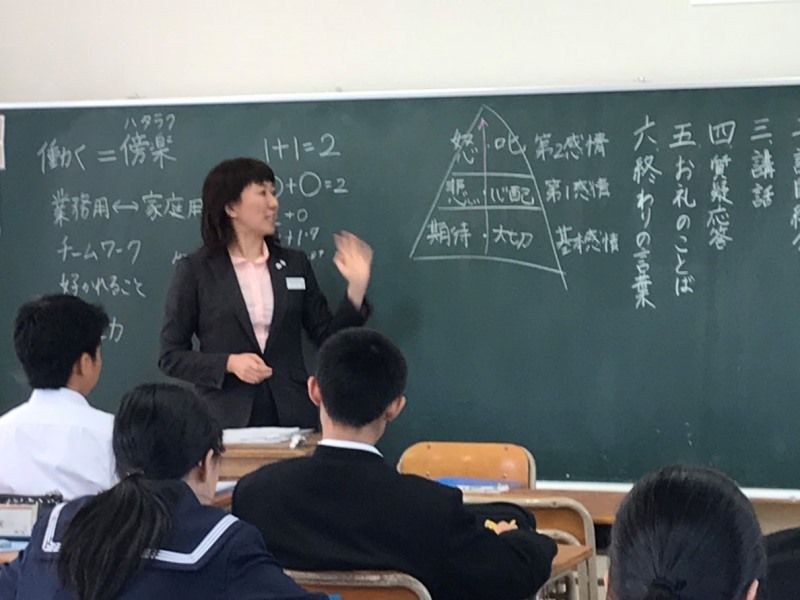 ハタラク
働く=傍楽
業務用↔家庭用
チームワーク
好かれること
力
1+1=2
0+0=2
+0
怒・叱 第2感情
悲・心配 第1感情
期待・大切 基本感情
三 講話
四 質疑応答
五 お礼のことば
六 終わりの言葉